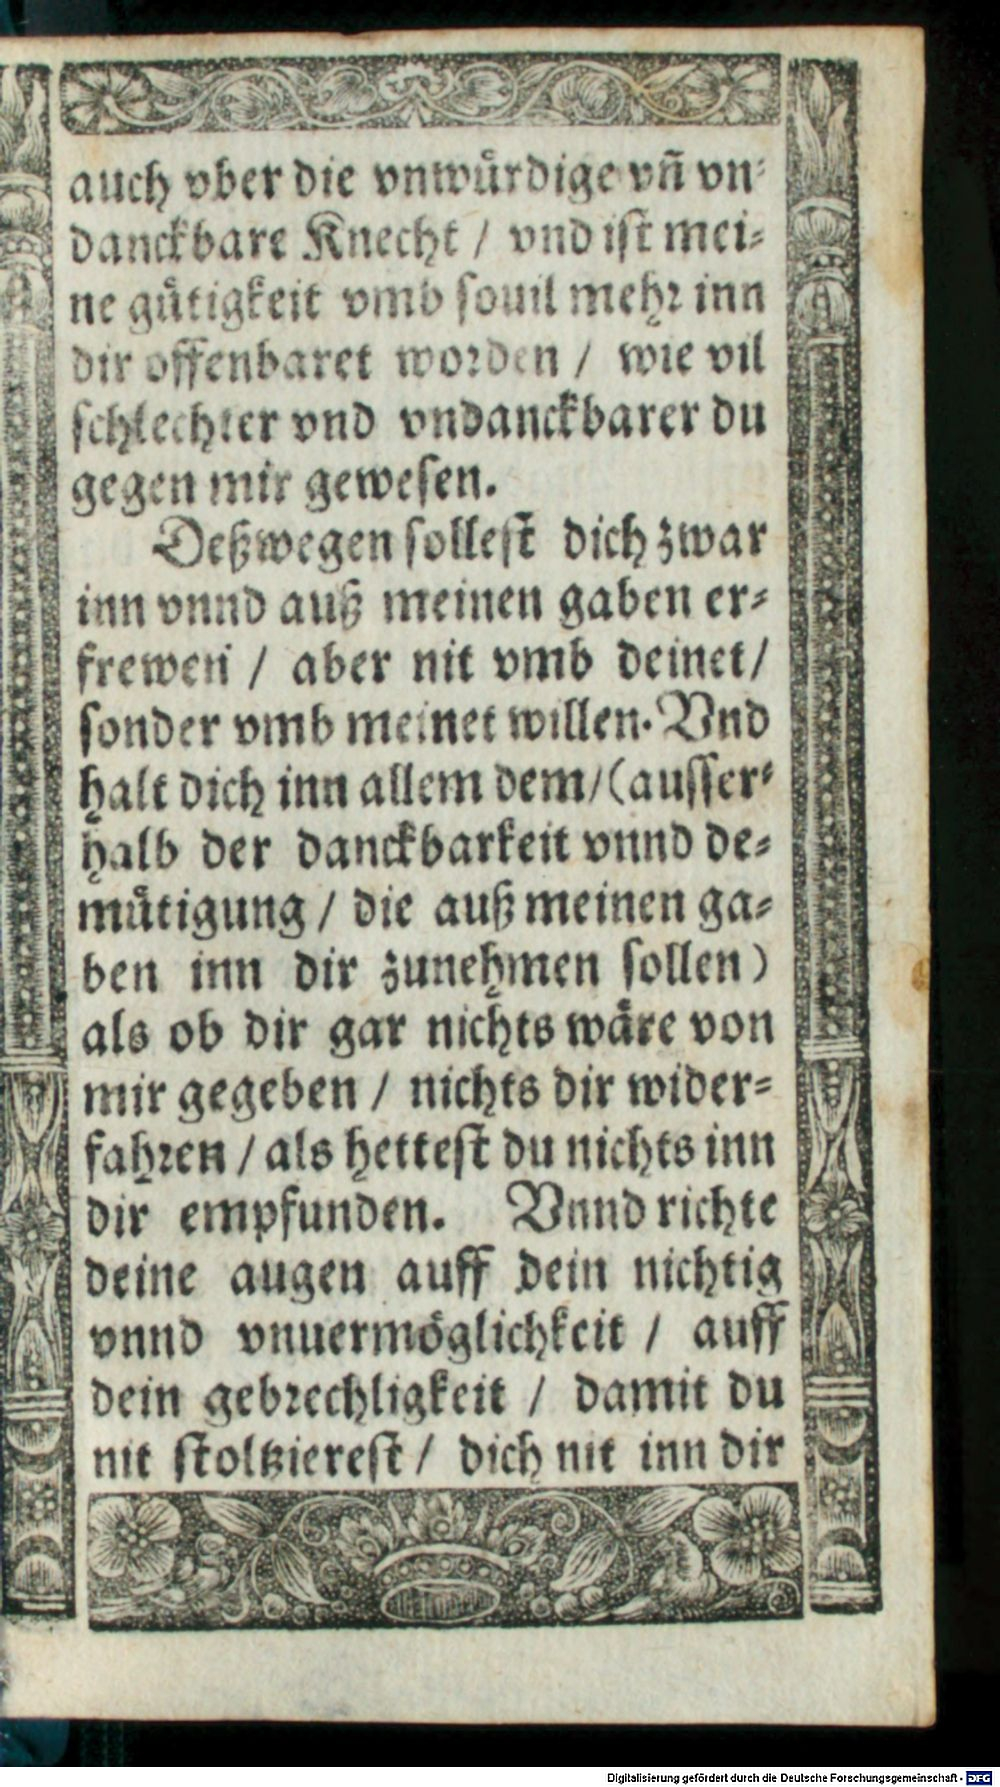 auch vber die vnwuͤrdige vñ vn⸗
danckbare Knecht / vnd ist mei⸗
ne guͤtigkeit vmb souil mehr inn
dir offenbaret worden / wie vil
schlechter vnd vndanckbarer du
gegen mir gewesen.
Deßwegen sollest dich zwar
inn vnnd auß meinen gaben er⸗
frewen / aber nit vmb deinet /
sonder vmb meinet willen. Vnd
halt dich inn allem dem / (ausser⸗
halb der danckbarkeit vnnd de⸗
muͤtigung / die auß meinen ga⸗
ben inn dir zunehmen sollen)
als ob dir gar nichts waͤre von
mir gegeben / nichts dir wider⸗
fahren / als hettest du nichts inn
dir empfunden. Vnnd richte
deine augen auff dein nichtig
vnnd vnuermoͤglichkeit / auff
dein gebrechligkeit / damit du
nit stoltzierest / dich nit inn dir
Digitalisierung gefördert durch die Deutsche Forschungsgemeinschaft - DFG